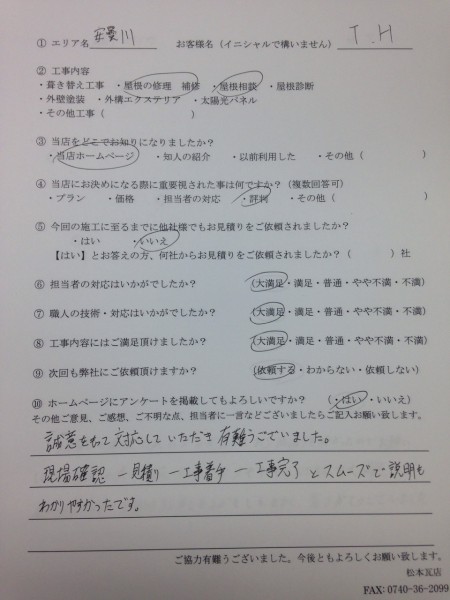 ① エリア名 安曇川 お客様名（イニシャルで構いません） T.H
② 工事内容
・葺き替え工事 ・屋根の修理 補修 ・屋根相談 ・屋根診断
・外壁塗装 ・外構エクステリア ・太陽光パネル
・その他工事（ ）
③ 当店をどこでお知りになりましたか？
・当店ホームページ ・知人の紹介 ・以前利用した ・その他（ ）
④ 当店にお決めになる際に重要視された事は何ですか？（複数回答可）
・プラン ・価格 ・担当者の対応 ・評判 ・その他（ ）
⑤ 今回の施工に至るまでに他社様でもお見積りをご依頼されましたか？
・はい ・いいえ
【はい】とお答えの方、何社からお見積りをご依頼されましたか？（ ）社
⑥ 担当者の対応はいかがでしたか？ （大満足・満足・普通・やや不満・不満）
⑦ 職人の技術・対応はいかがでしたか？ （大満足・満足・普通・やや不満・不満）
⑧ 工事内容にはご満足頂けましたか？ （大満足・満足・普通・やや不満・不満）
⑨ 次回も弊社にご依頼頂けますか？ （依頼する・わからない・依頼しない）
⑩ ホームページにアンケートを掲載してもよろしいですか？ （・はい・いいえ）
その他ご意見、ご感想、ご不明な点、担当者に一言などございましたらご記入お願い致します。
誠意をもって対応していただき有難うございました。
現場確認 ー見積り ー工事着手 ー工事完了 とスムーズで説明も
わかりやすかったです。
ご協力有難うございました。今後ともよろしくお願い致します。
松本瓦店
FAX: 0740-36-2099